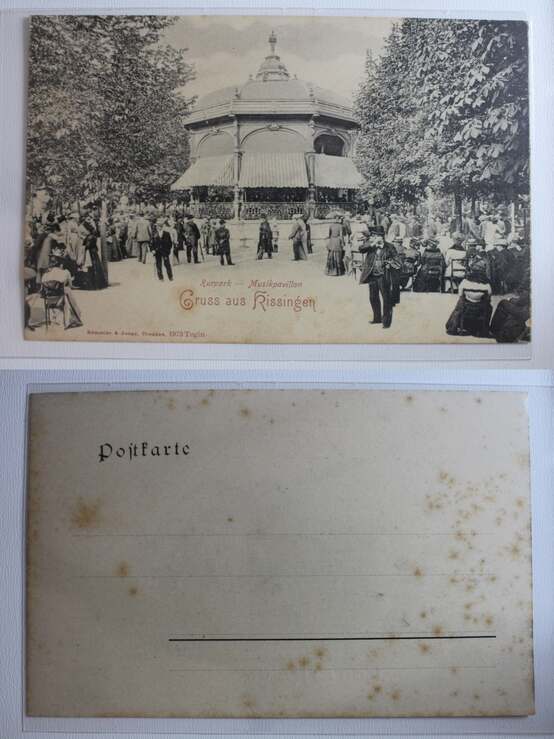 Kurpark — Musikpavillon
Gruss aus Kissingen
Kemmler & Jonas, Dresden. 1973 Tegtn
Postkarte